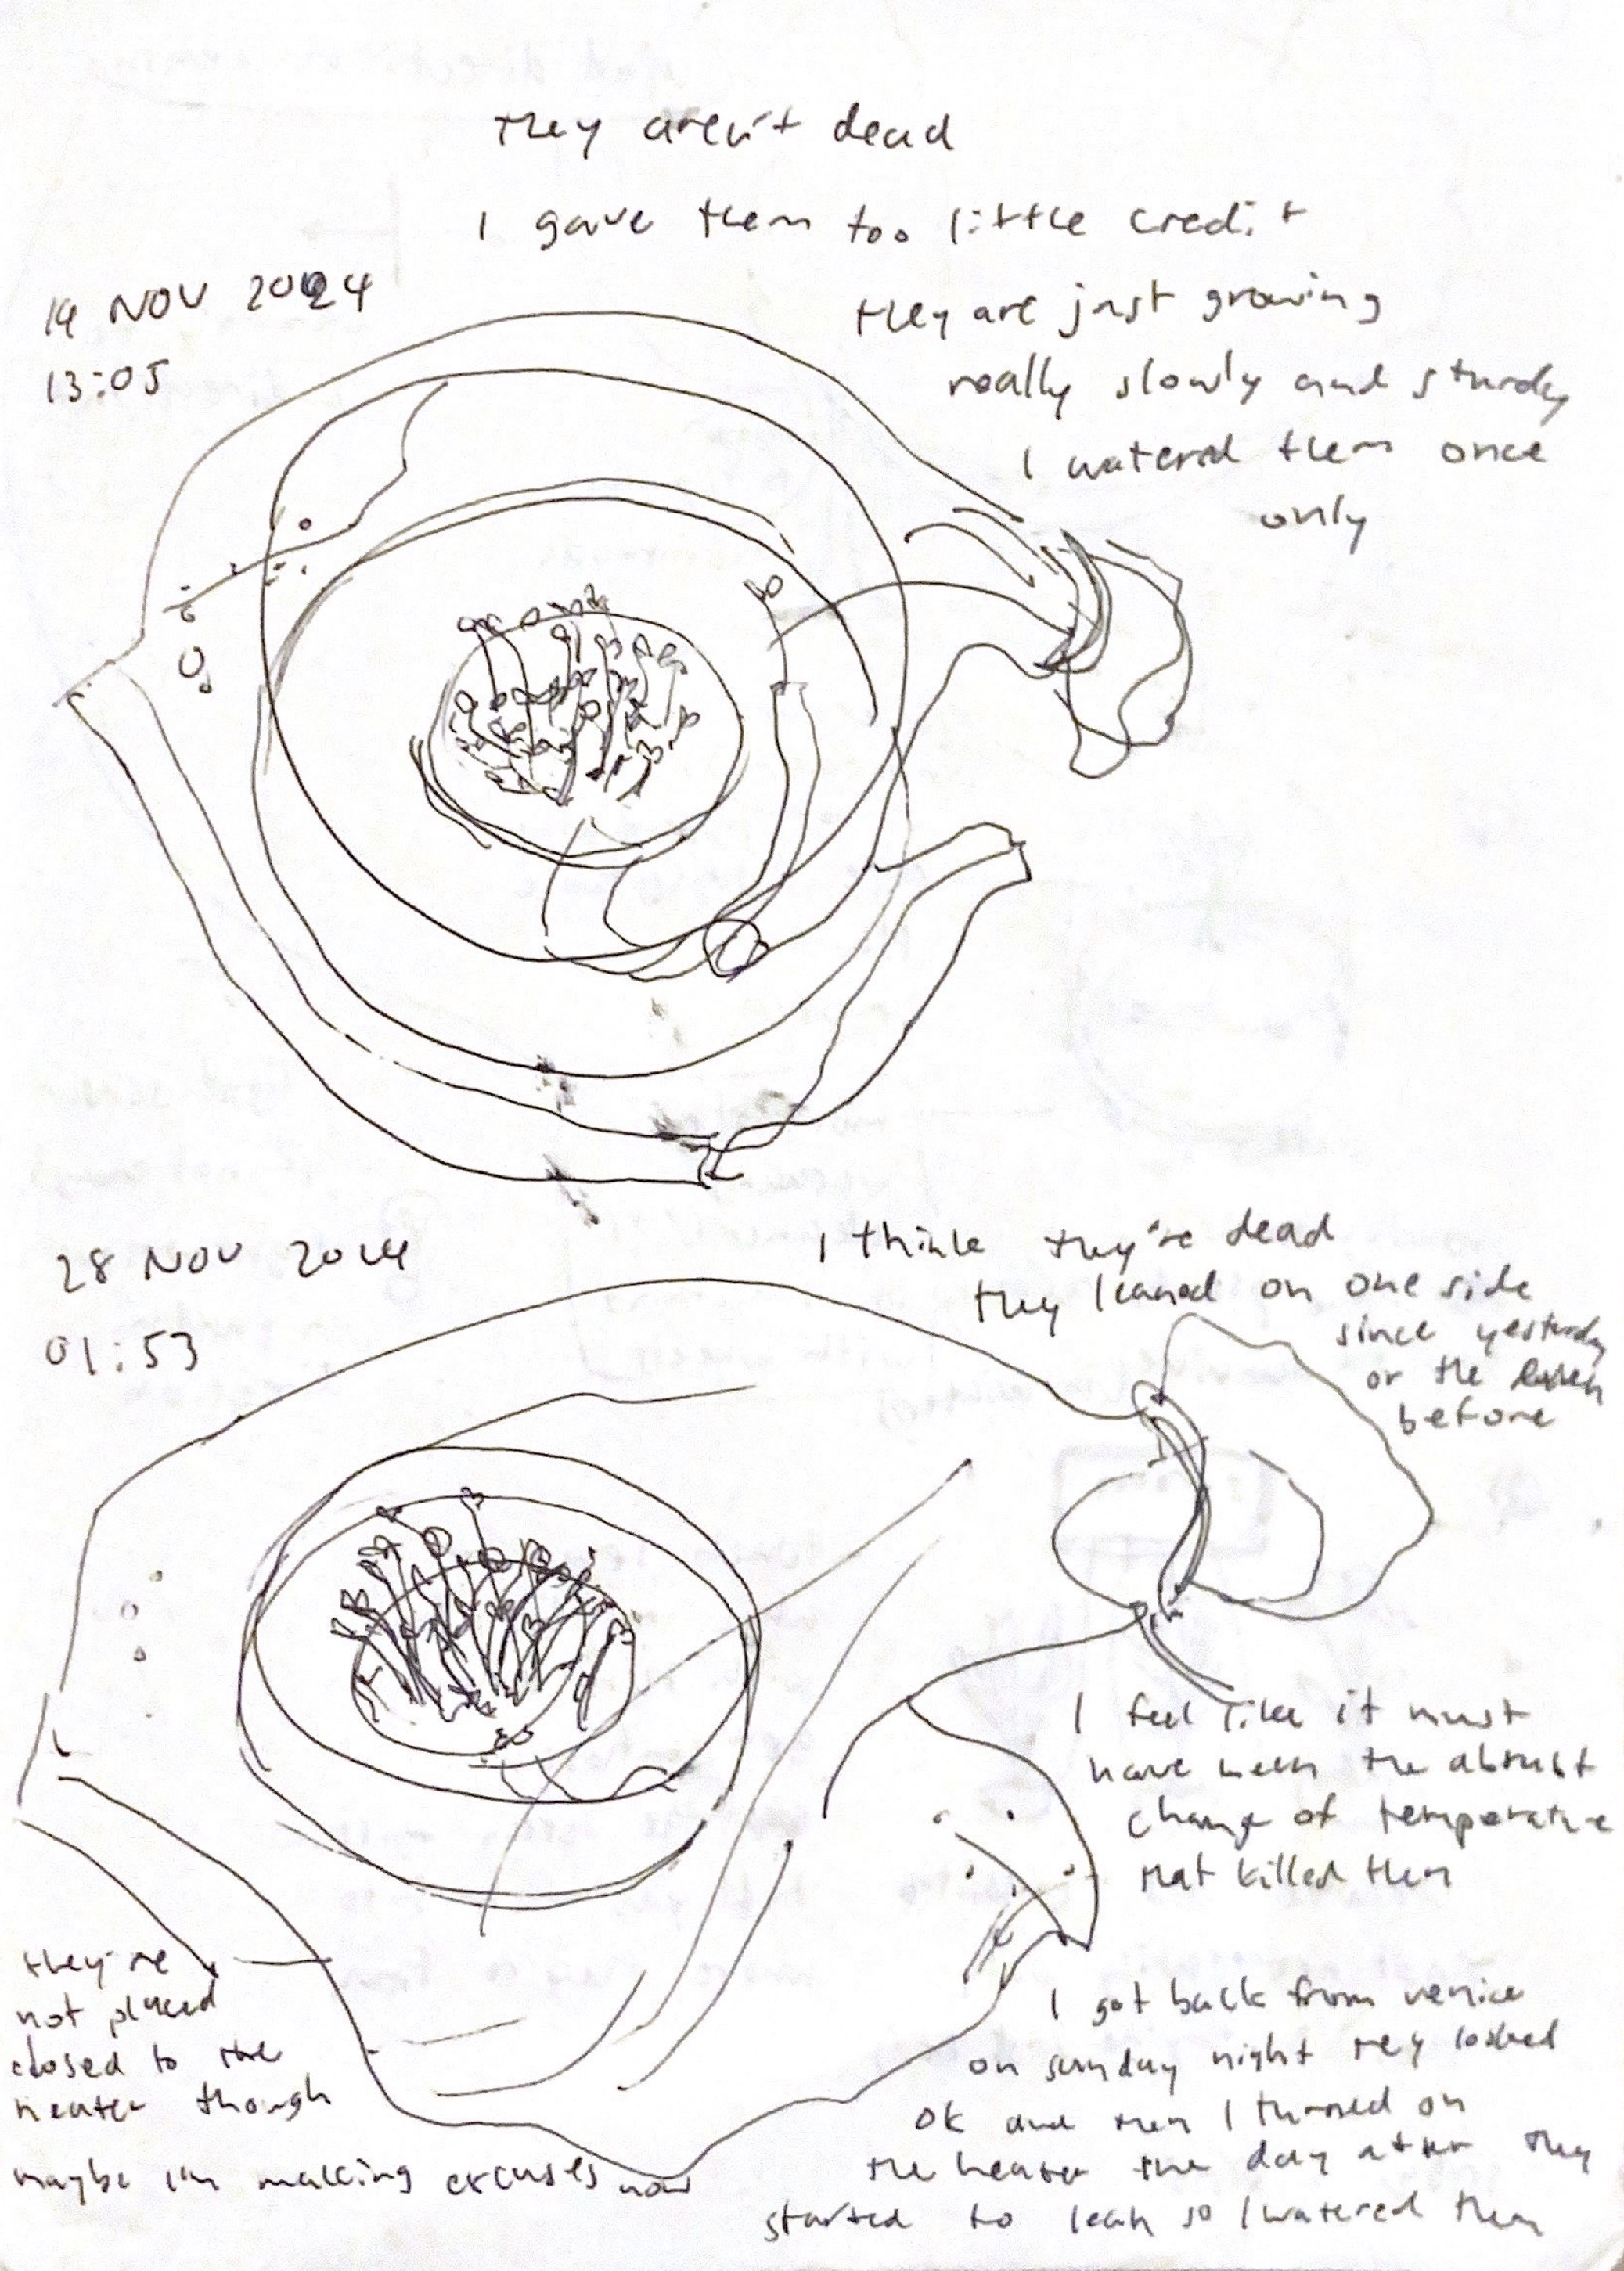 they aren't dead
I gave them too little credit
14 NOV 2024
13:05
they are just growing
really slowly and sturdy
I watered them once
only
28 NOV 2024
01:53
I think they're dead
they leaned on one side
since yesterday
or the
before
I feel like it must
have been the abrubt
change of temperature
that killed them
I got back from venice
on sunday night they looked
OK and then I turned on
the heater the day after they
started to lean so I watered them
they're
not placed
closed to the
heater though
maybe im making excuses now